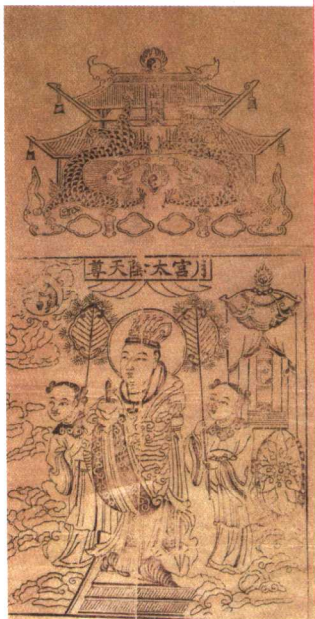 月宮太陰天尊